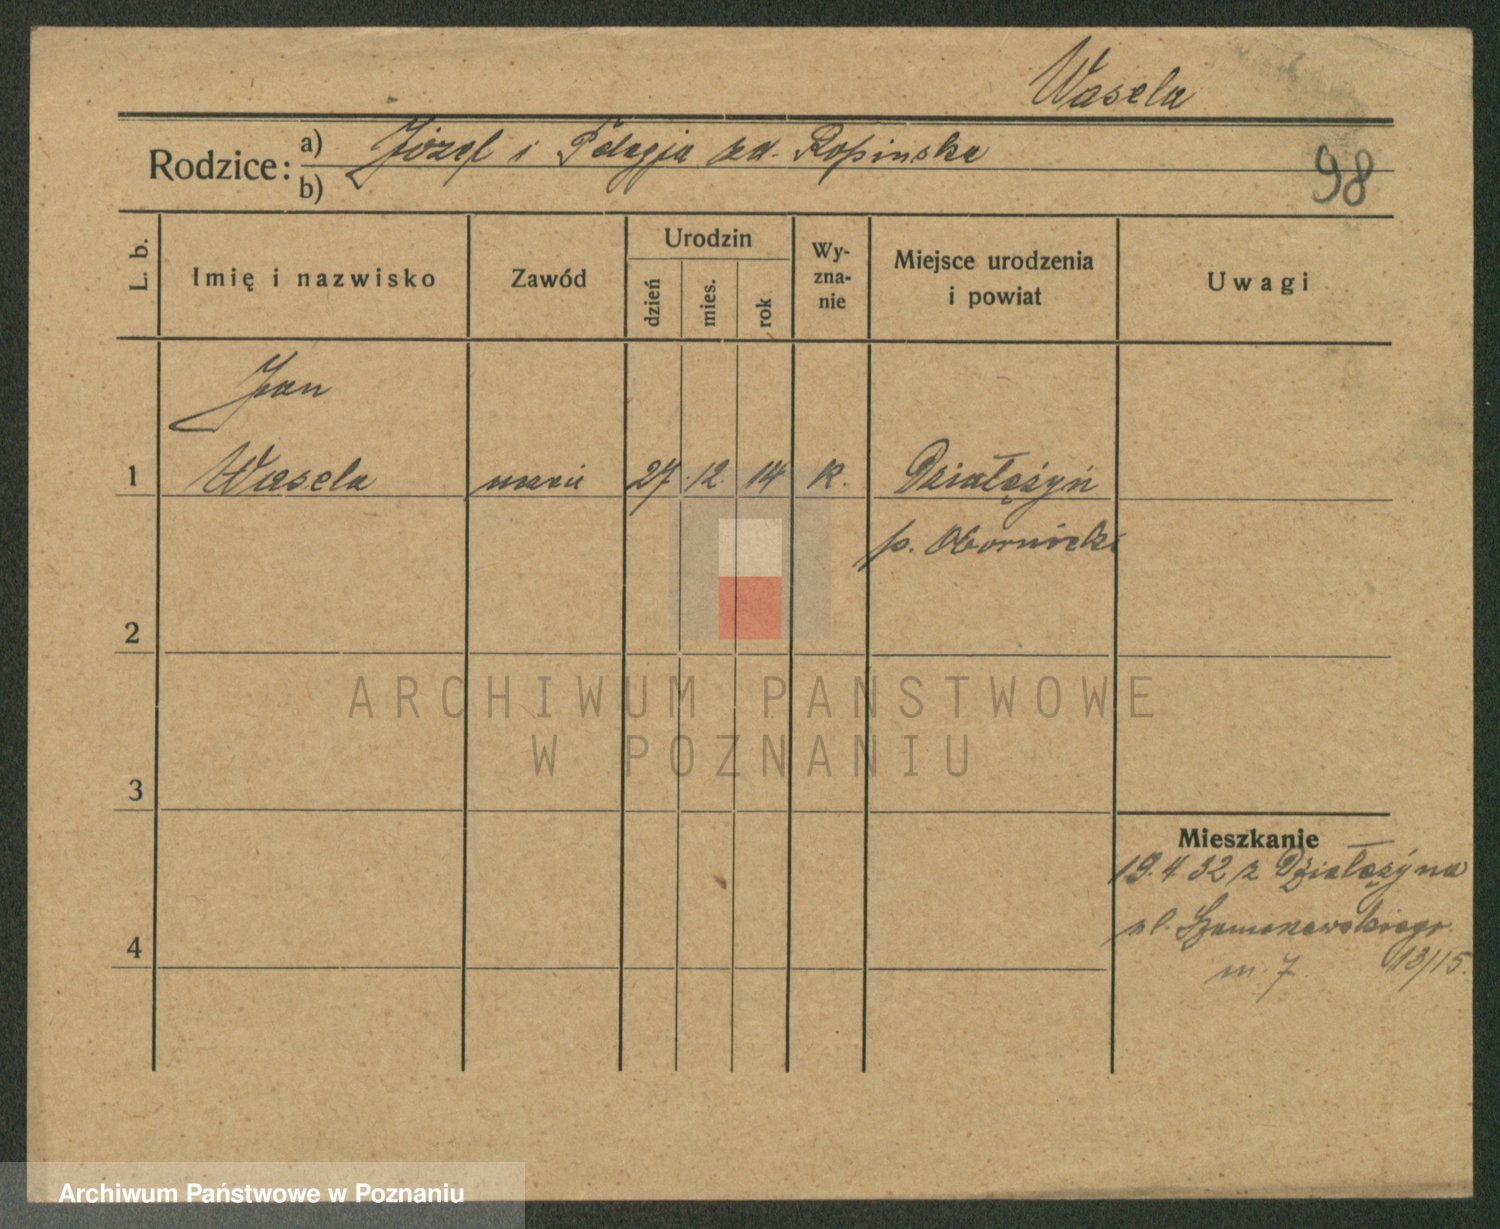 Wasela
Rodzice: a) Józef i Pelagja zd. Ropinska
b)
98
L. b.
Imię i nazwisko
Zawód
Urodzin
dzień
mies.
rok
Wy-
zna-
nie
Miejsce urodzenia
i powiat
Uwagi
Jan
1 Wasela uczeń 27 12. 14 k. Działężyń
p. Obornicki
2
ARCHIWUM PAŃSTWOWE
W POZNANIU
3
Mieszkanie
19.4 32 z Działężyna
ul.
13/15.
m. 7
4
Archiwum Państwowe w Poznaniu